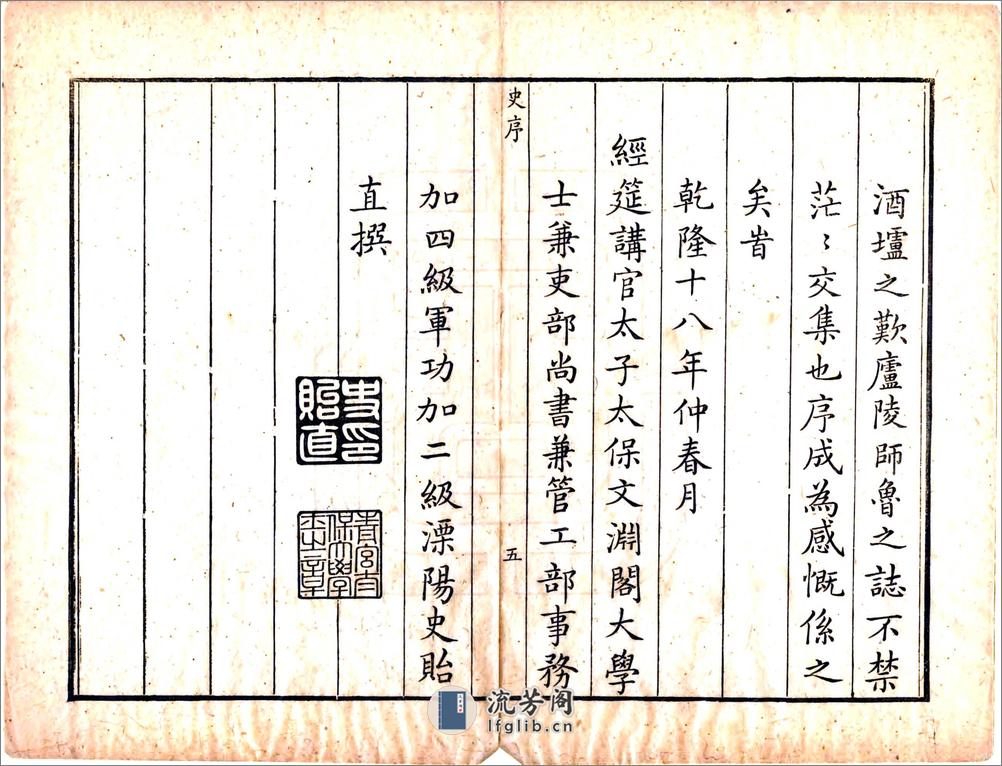 酒壚之歎廬陵師魯之誌不禁
茫〻交集也序成為感慨係之
矣旹
乾隆十八年仲春月
經筵講官太子太保文淵閣大學
士兼吏部尚書兼管工部事務
史序
五
加四級軍功加二級溧陽史貽
直撰
史印
貽直
青宮太
保大學
士之章
流芳阁
lfglib.cn